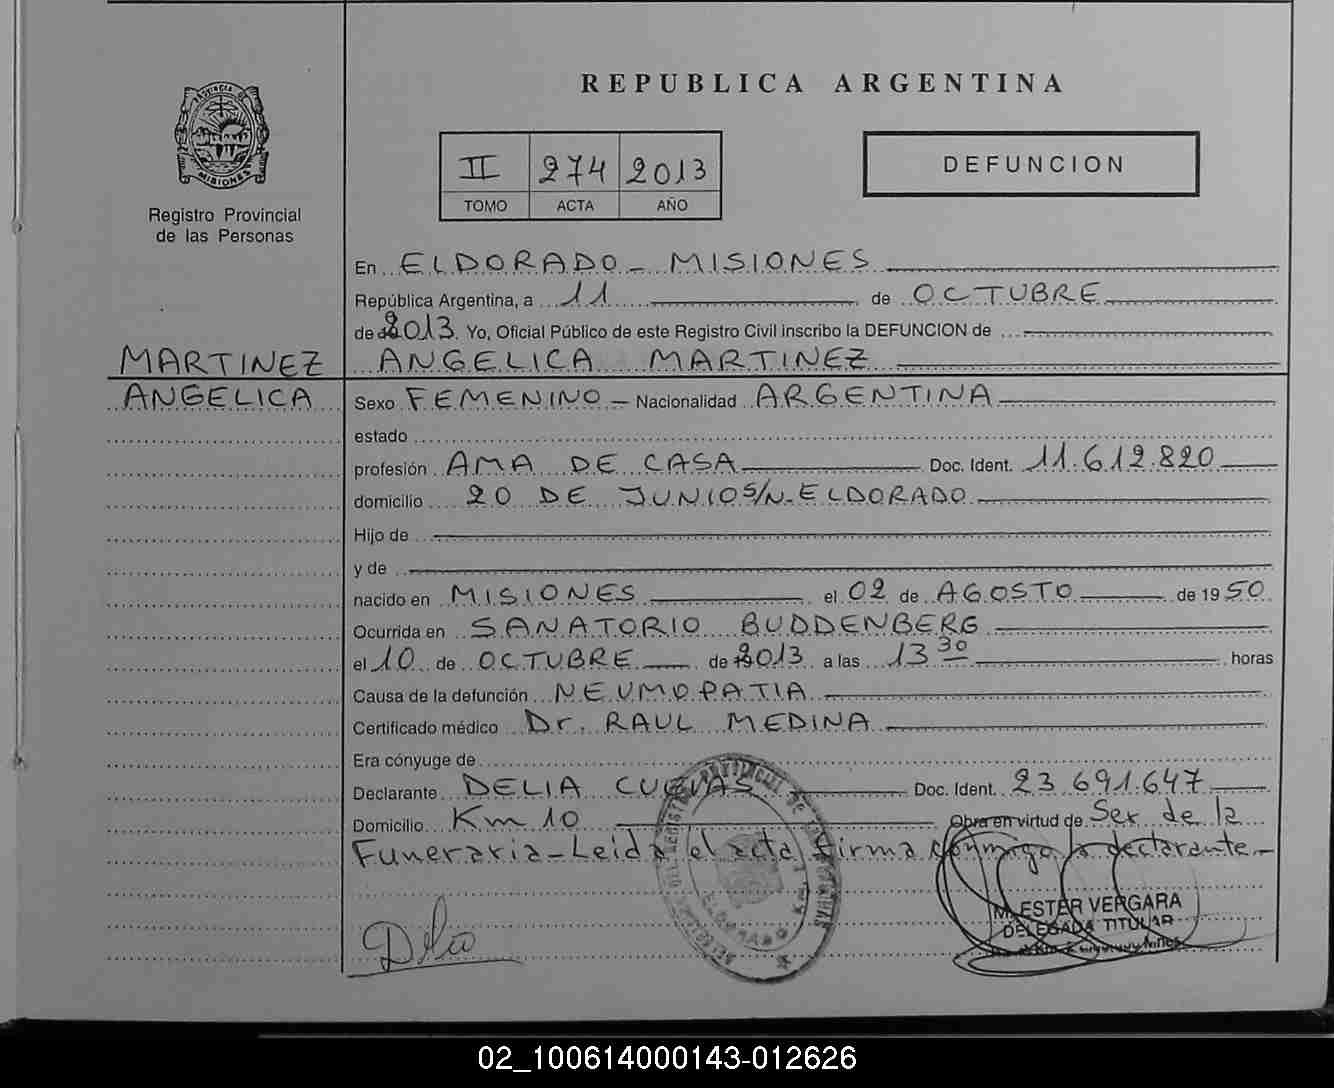 REPUBLICA ARGENTINA
PROVINCIA DE MISIONES
Registro Provincial
de las Personas
II 274 2013
TOMO ACTA AÑO
DEFUNCION
En ELDORADO - MISIONES
República Argentina, a 11 de OCTUBRE
de 2013. Yo, Oficial Público de este Registro Civil inscribo la DEFUNCION de
MARTINEZ ANGELICA MARTINEZ
ANGELICA Sexo FEMENINO - Nacionalidad ARGENTINA
estado
profesión AMA DE CASA Doc. Ident. 11.612.820
domicilio 20 DE JUNIO S/N - ELDORADO
Hijo de
y de
nacido en MISIONES el 02 de AGOSTO de 1950
Ocurrida en SANATORIO BUDDENBERG
el 10 de OCTUBRE de 2013 a las 13 30 horas
Causa de la defunción NEUMOPATIA
Certificado médico Dr. RAUL MEDINA
Era cónyuge de
Declarante DELIA CUEVAS Doc. Ident. 23.691.647
Domicilio Km 10 Obra en virtud de Ser de la
Funeraria - Leida el acta firma conmigo la declarante. -
ELDORADO
M. ESTER VERGARA
DELEGADA TITULAR
02_100614000143-012626